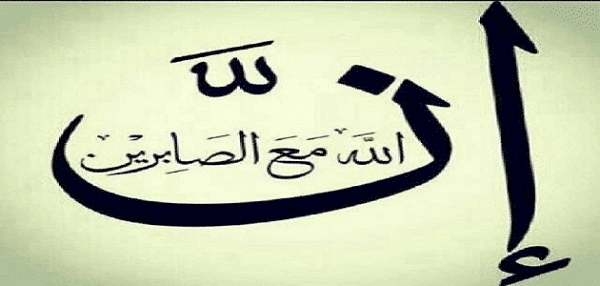 إِنَّ اللَّهَ مَعَ الصَابِرِين